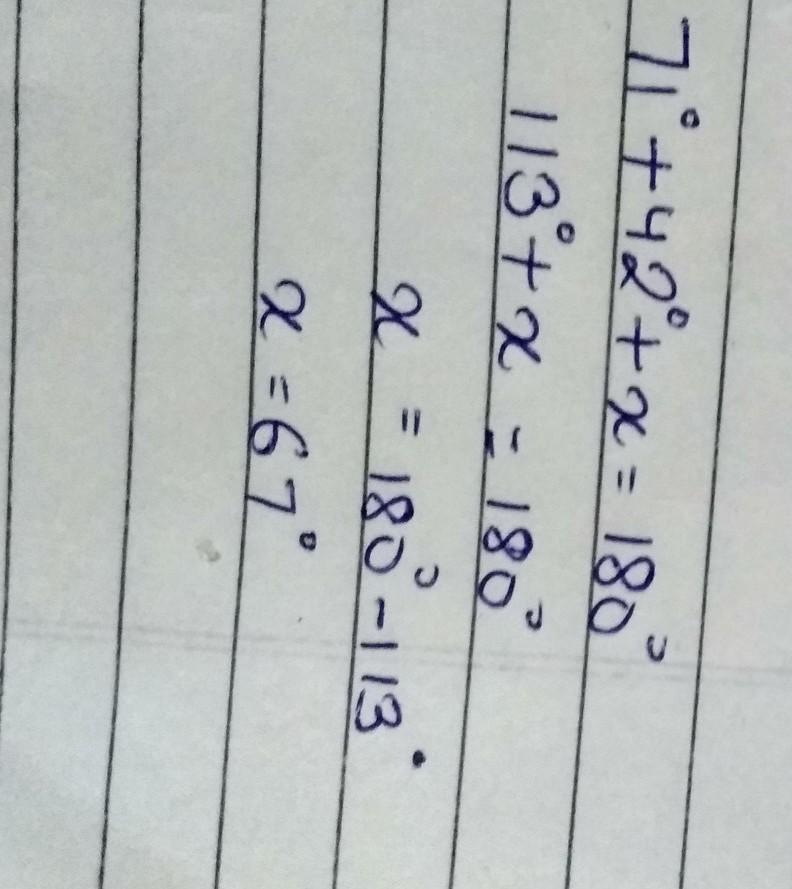 71° + 42° + x = 180°
113° + x = 180°
x = 180° - 113°
x = 67°